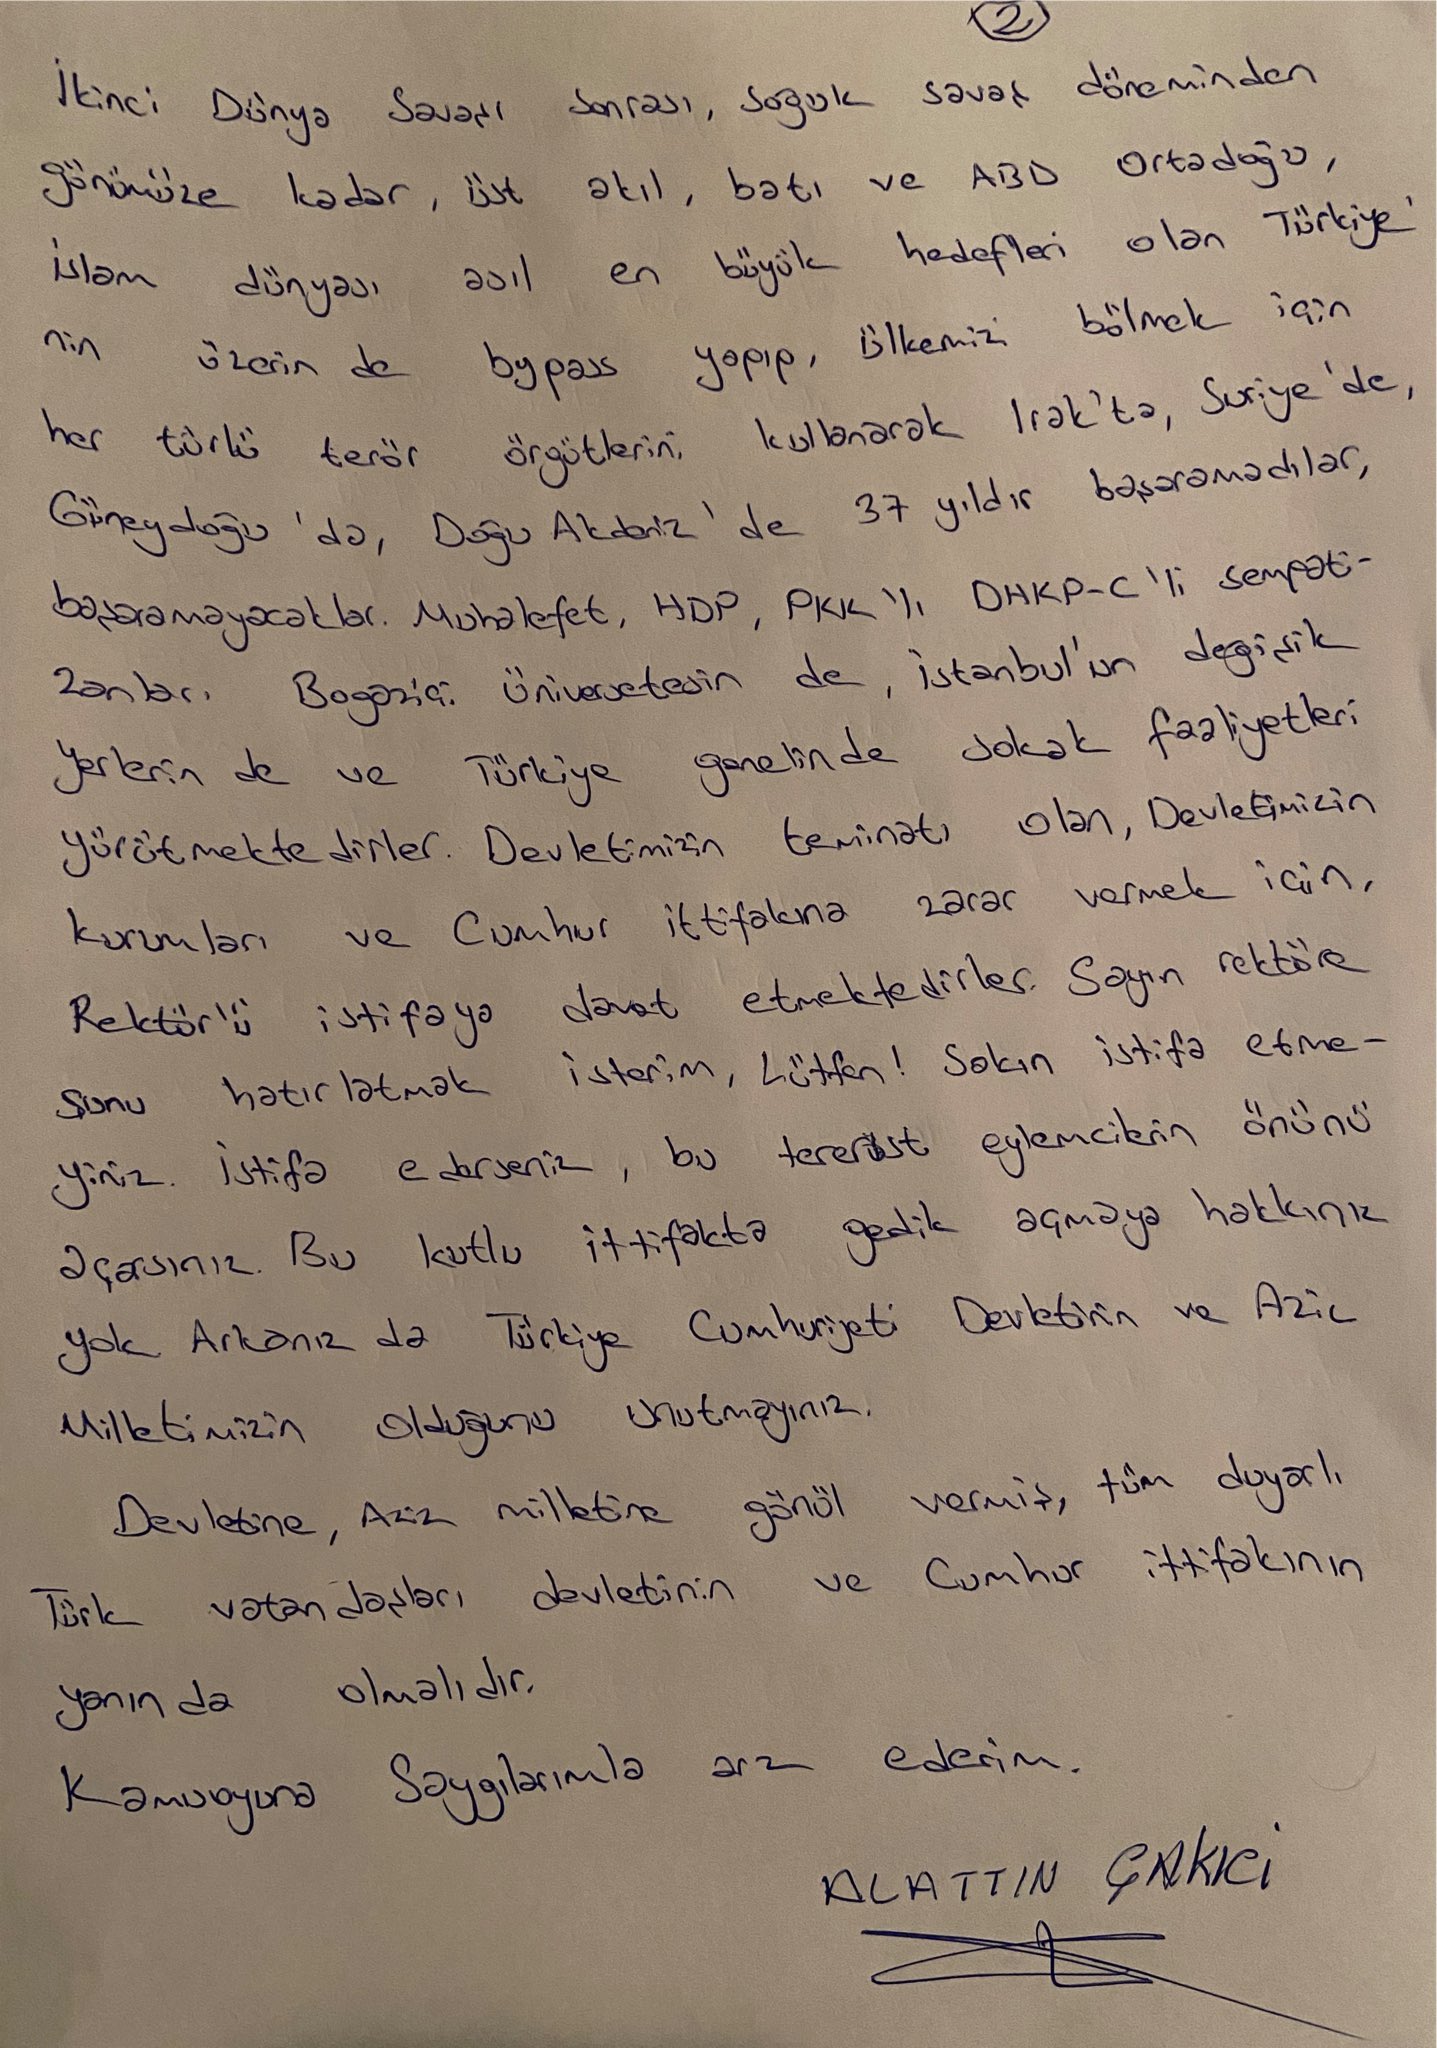 2
İkinci Dünya Savaşı sonrası, soğuk savaş döneminden
günümüze kadar, üst akıl, batı ve ABD Ortadoğu,
islam dünyası asıl en büyük hedefleri olan Türkiye'
nin üzerin de bypass yapıp, ülkemizi bölmek için
her türlü terör örgütlerini kullanarak Irak'ta, Suriye'de,
Güneydoğu'da, Doğu Akdeniz'de 37 yıldır başaramadılar,
başaramayacaklar. Muhalefet, HDP, PKK'lı DHKP-C'li sempati-
zanları Bogaziçi üniversetesin de, istanbul'un degişik
yerlerin de ve Türkiye genelinde sokak faaliyetleri
yürütmektedirler. Devletimizin teminatı olan, Devletimizin
kurumları ve Cumhur ittifakına zarar vermek için,
Rektör'ü istifaya davet etmektedirler. Sayın rektöre
şunu hatırlatmak isterim, Lütfen! Sakın istifa etme-
yiniz. İstifa ederseniz, bu tererist eylemcilerin önünü
açarsınız. Bu kutlu ittifakta gedik açmaya hakkınız
yok Arkanız da Türkiye Cumhuriyeti Devletinin ve Aziz
Milletimizin olduğunu unutmayınız.
Devletine, Aziz milletine gönül vermiş, tüm duyarlı
Türk vatandaşları devletinin ve Cumhur ittifakının
yanında olmalıdır.
Kamuoyuna Saygılarımla arz ederim.
ALATTIN ÇAKICI